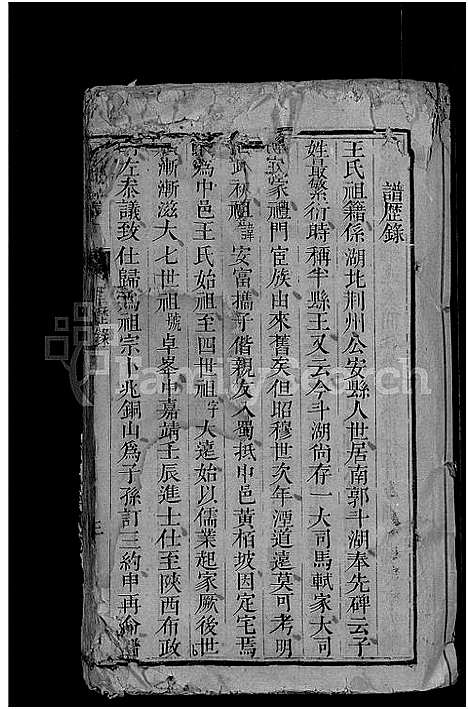 譜歷錄
王氏祖籍係湖北荆州公安縣人世居南郭斗湖奉先碑云子
姓最繁衍時稱半縣王又云今斗湖尚存一大司馬軾家大司
家禮門宦族由來舊矣但昭穆世次年湮道遠莫可考明
秋祖諱安富攜子偕親友入蜀抵中邑黃栢坡因定宅焉
為中邑王氏始祖至四世祖字大遠始以儒業起家厥後世
漸漸滋大七世祖號卓峯中嘉靖壬辰進士仕至陝西布政
左叅議致仕歸為祖宗卜兆銅山為子孫訂三約申再命譜
歷錄
三
FamilySearch